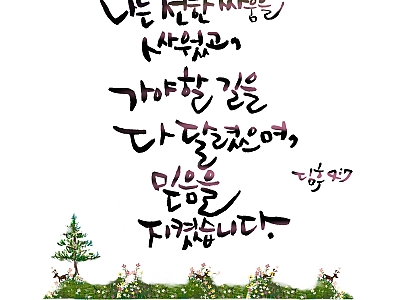 나는 선한 싸움을
싸웠고,
가야할 길을
다 달렸으며,
믿음을
지켰습니다.
딤후 4:7